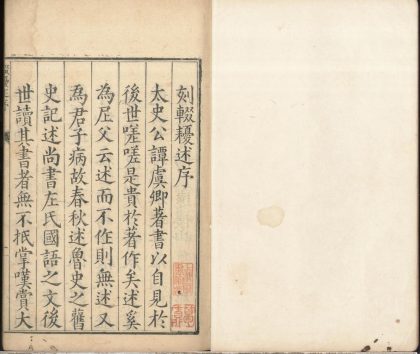 刻輟耰述序
太史公譚虞卿著書以自見於
後世嗟嗟是貴於著作矣述奚
為㞐父云述而不作則無述又
為君子病故春秋述魯史之舊
史記述尚書左氏國語之文後
世讀其書者無不抵掌嘆賞大